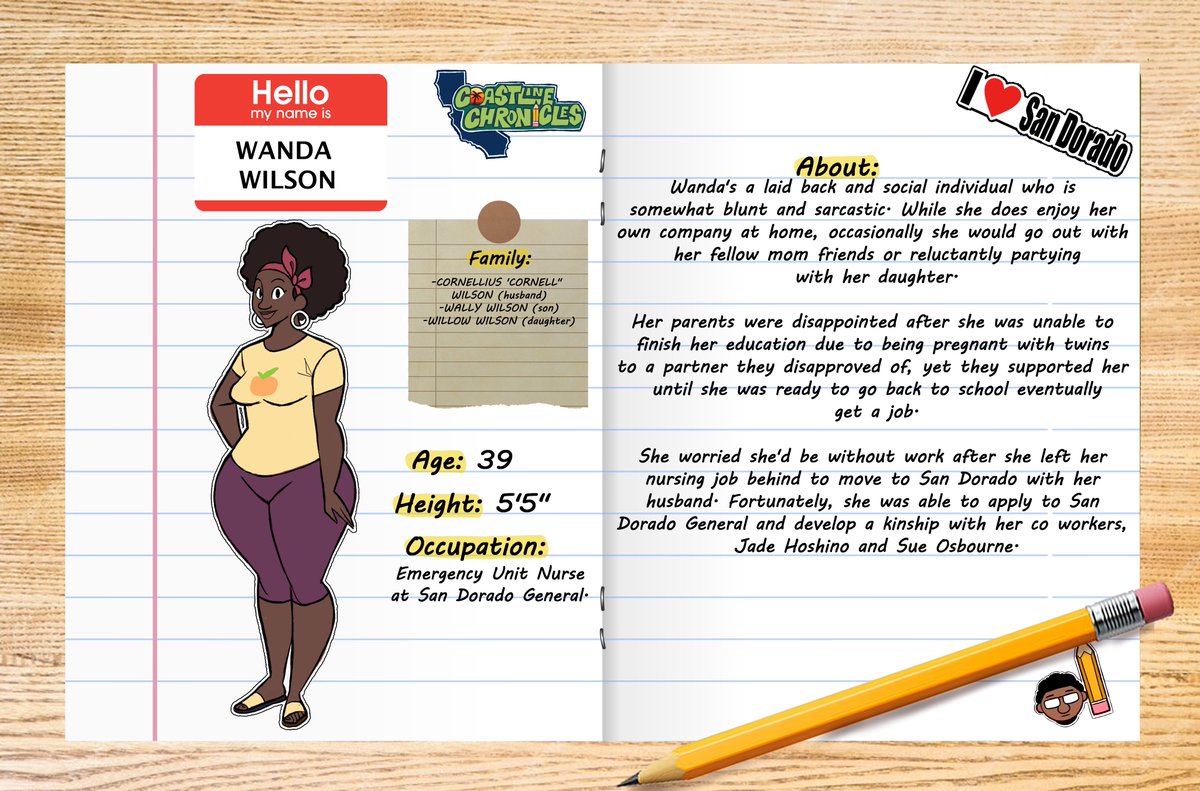 Hello
my name is
WANDA
WILSON
COASTLINE
CHRONICLES
Family:
-CORNELLIUS 'CORNELL"
WILSON (husband)
-WALLY WILSON (son)
-WILLOW WILSON (daughter)
Age: 39
Height: 5'5"
Occupation:
Emergency Unit Nurse
at San Dorado General.
I ❤ San Dorado
About:
Wanda's a laid back and social individual who is
somewhat blunt and sarcastic. While she does enjoy her
own company at home, occasionally she would go out with
her fellow mom friends or reluctantly partying
with her daughter.
Her parents were disappointed after she was unable to
finish her education due to being pregnant with twins
to a partner they disapproved of, yet they supported her
until she was ready to go back to school eventually
get a job.
She worried she'd be without work after she left her
nursing job behind to move to San Dorado with her
husband. Fortunately, she was able to apply to San
Dorado General and develop a kinship with her co workers,
Jade Hoshino and Sue Osbourne.